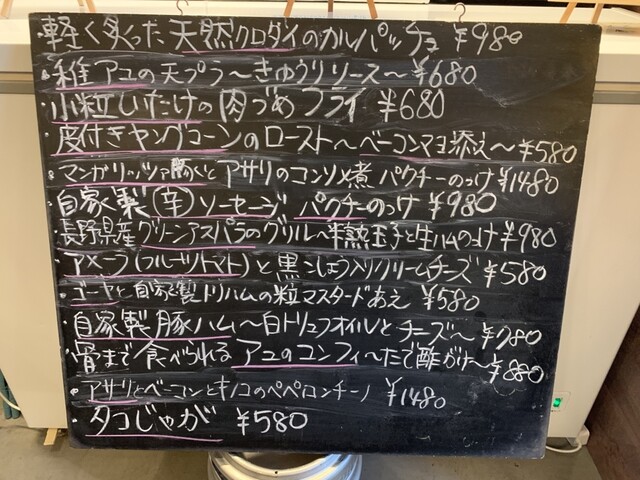 ・軽く炙った天然クロダイのカルパッチョ ¥980
・稚アユの天プラ〜きゅうりソース〜 ¥680
・小粒しいたけの肉づめフライ ¥680
・皮付きヤングコーンのロースト〜ベーコンマヨ添え〜 ¥580
・マンガリッツァ豚とアサリのコンソメ煮 パクチーのっけ ¥1480
・自家製(辛)ソーセージ パクチーのっけ ¥980
・長野県産グリーンアスパラのグリル〜半熟玉子と生ハムのっけ ¥980
・アメーラ(フルーツトマト)と黒こしょう入りクリームチーズ ¥580
・ゴーヤと自家製トリハムの粒マスタードあえ ¥580
・自家製豚ハム〜白トリュフオイルとチーズ〜 ¥780
・骨まで食べられるアユのコンフィ〜たで酢がけ〜 ¥880
・アサリとベーコンとキノコのペペロンチーノ ¥1480
・タコじゃが ¥580